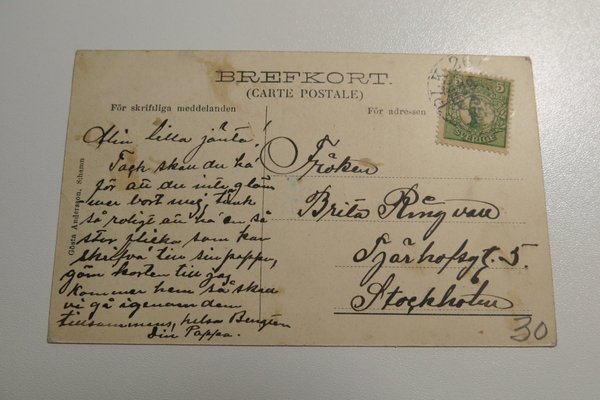 BREFKORT.
(CARTE POSTALE)
För skriftliga meddelanden
För adressen
5
SVERIGE
Min lilla jänta!
Tack skau du ha
för att du inte glöm
mer bort meg, tänk
så roligt att ha en så
stor flicka som kan
skrifva till sin pappa,
göm korten till jag
kommer hem så skau
vi gå igenom dem
tillsammans, helsa Bengten
Din Pappa.
Fröken
Brita Ringvall
Tjärhofsgt. 5.
Stockholm
Gösta Andersson, S:hamn
30